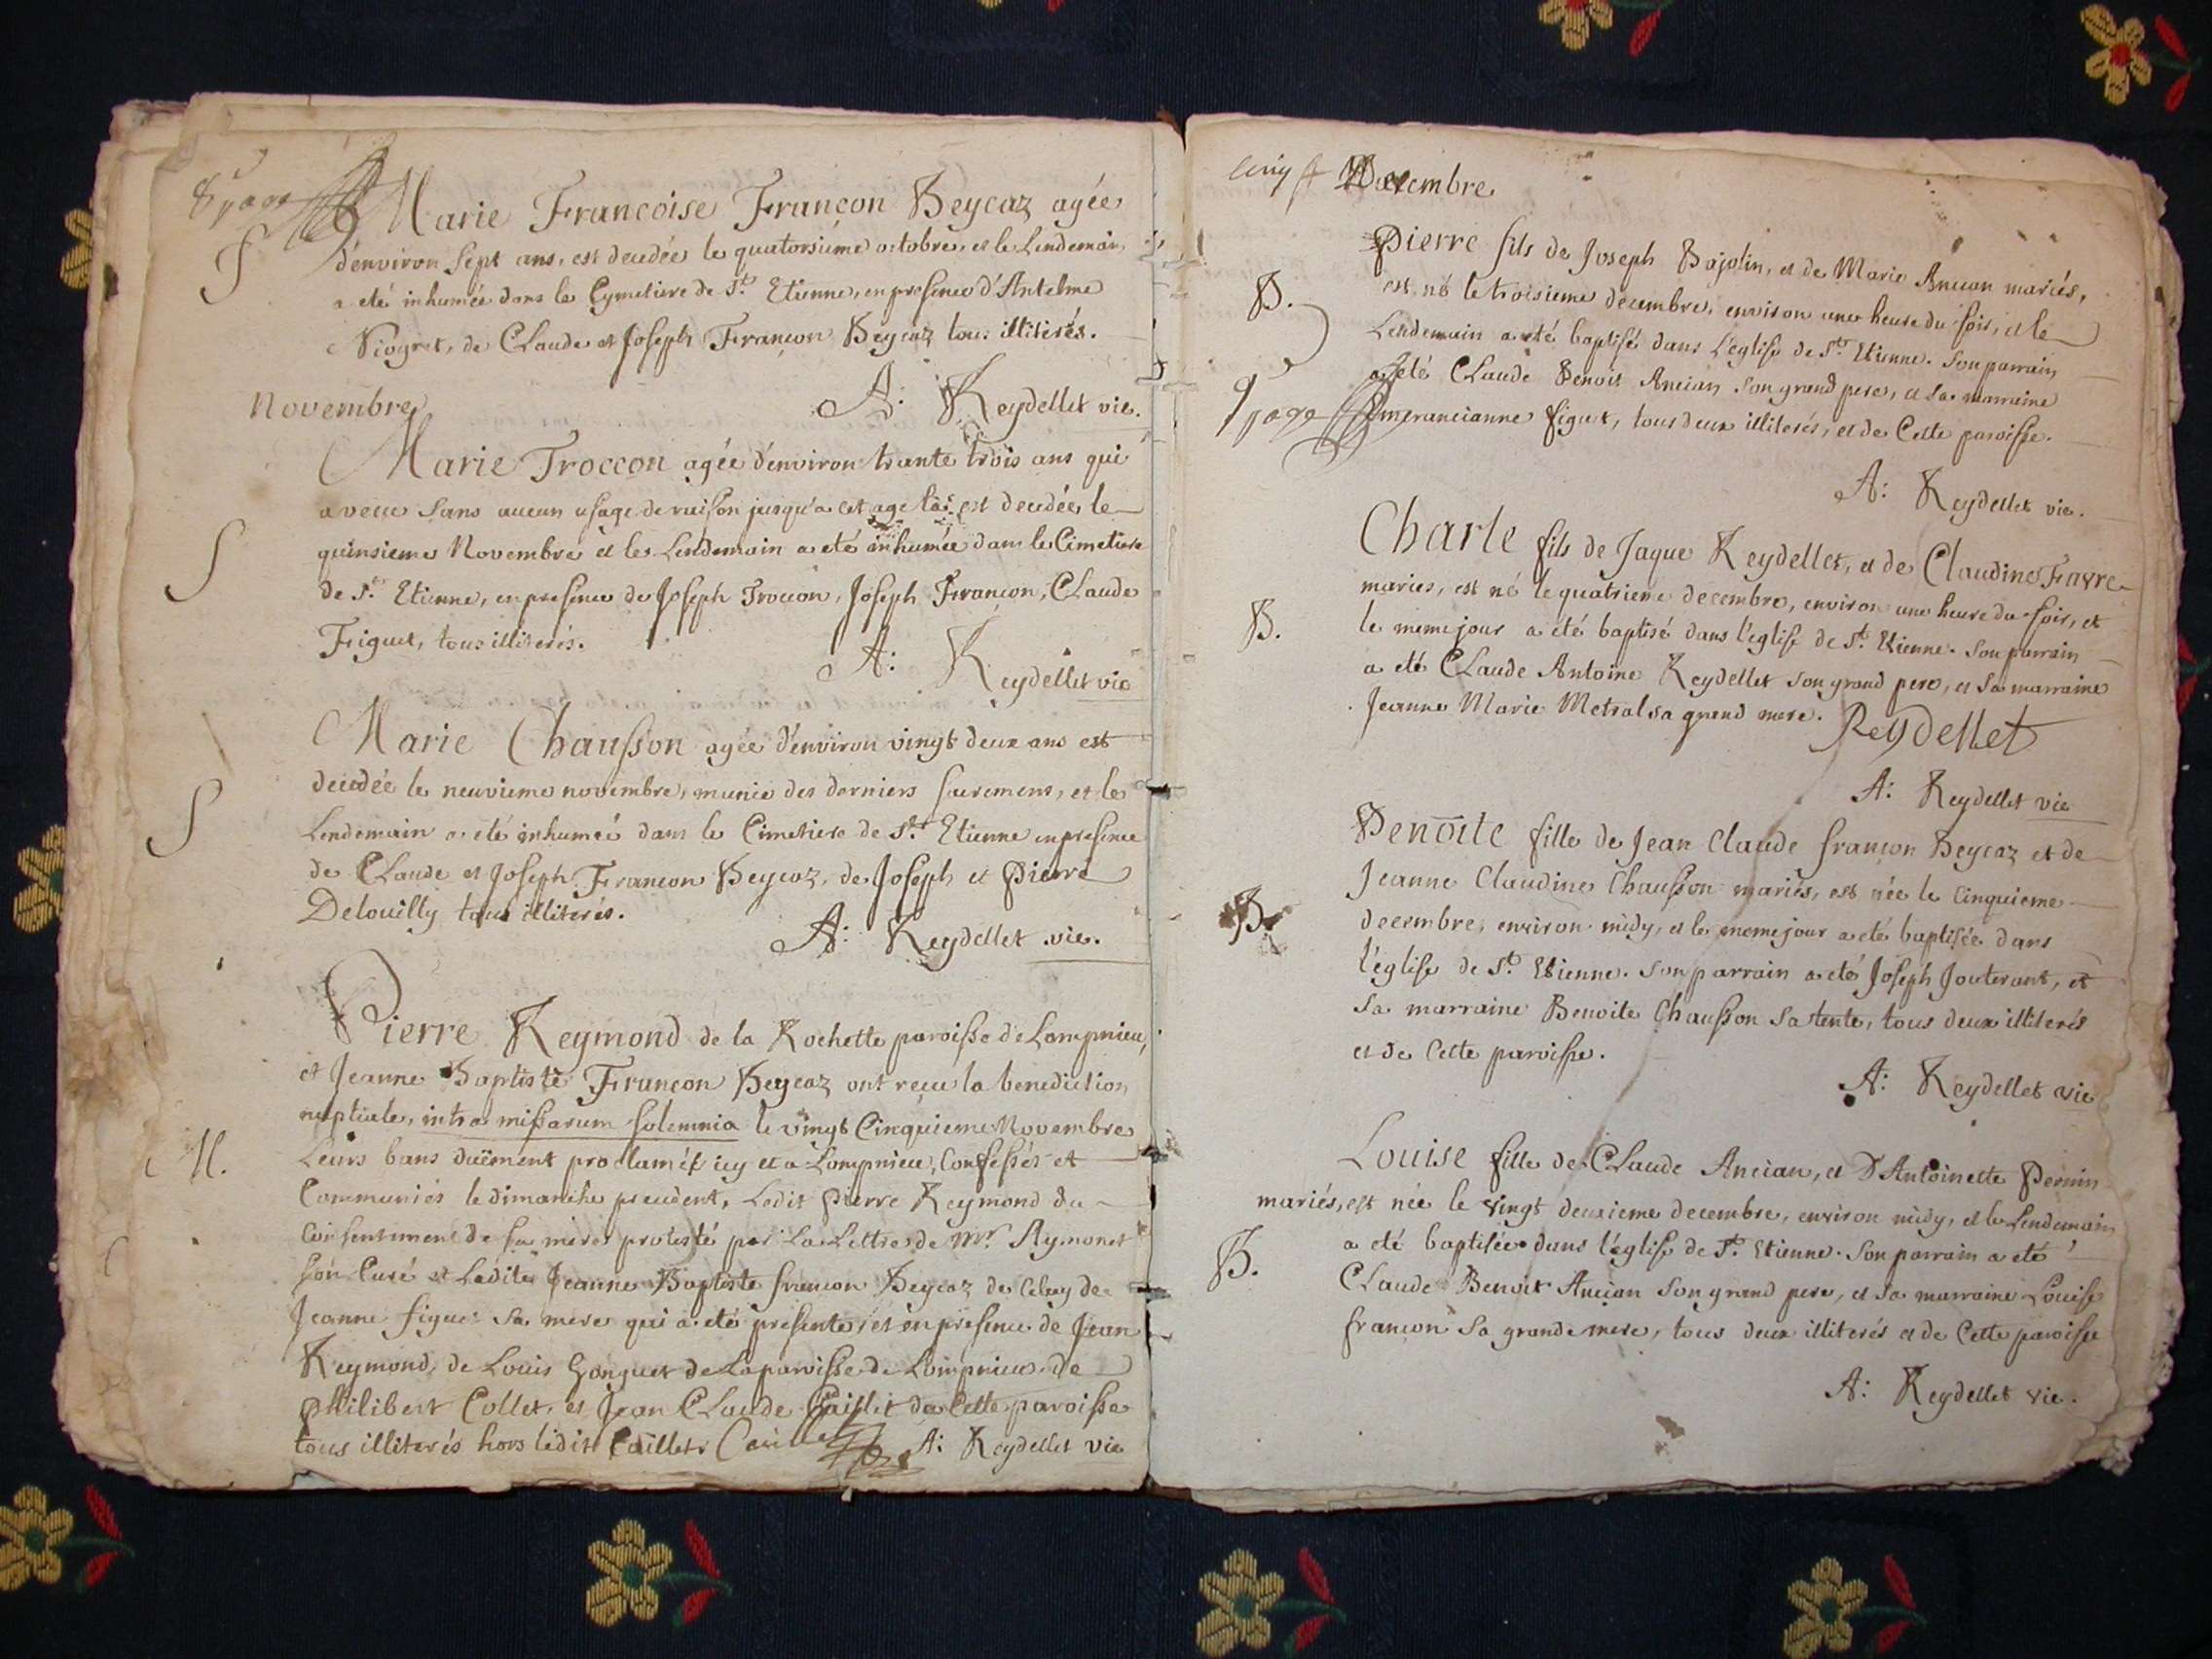 8e page
Marie Francoise Françon Beycaz agée
S
d'environ sept ans, est decedée le quatorsiéme octobre, et le Lendemain
a eté inhumée dans le Cymetiere de St. Etienne, en presence d'Antelme
Viogret, de Claude et Joseph Françon Beycaz tous illiterés.
A: Reydellet vic.
Novembre
Marie Troccon agée d'environ trante trois ans qui
a vecu sans aucun usage de raison jusqu'a cet age là est decedée le
S
quinsieme Novembre et le Lendemain a eté inhumée dans le Cimetiere
de St. Etienne, en presence de Joseph Trocon, Joseph Françon, Claude
Figuet, tous illiterés.
A: Reydellet vic
Marie Chausson agée d'environ vingt deux ans est
S
decedée le neuvieme novembre, munie des derniers sacremens, et le
Lendemain a eté inhumeé dans le Cimetiere de St. Etienne en presence
de Claude et Joseph Françon Beycaz, de Joseph et Pierre
Delouilly tous illiterés.
A: Reydellet vic.
Pierre Reymond de la Rochette paroisse de Lompnieu,
et Jeanne Baptiste Françon Beycaz ont reçu la benediction
nuptiale, intra missarum solemnia le vingt Cinquieme Novembre
M.
Leurs bans duëment proclamés icy et a Lompnieu, Confessés et
Communiés le dimanche precedent, Ledit Pierre Reymond du
Consentiment de sa mere protesté par La Lettre de Mr. Aymonet
son Curé et Ladite Jeanne Baptiste françon Beycaz de Celuy de
Jeanne figuet sa mere qui a eté presente, et en presence de Jean
Reymond, de Louis Gonguet de La paroisse de Lompnieu, de
Philibert Collet, et Jean Claude Caillet de Cette paroisse
tous illiterés hors ledit Caillet. Caillet A: Reydellet vic
Decembre
Pierre fils de Joseph Bajolin, et de Marie Ancian mariés,
B.
est né le troisieme decembre, environ une heure du soir, et le
Lendemain a eté baptisé dans l'eglise de St. Etienne. Son parrain
a eté Claude Benoit Ancian son grand pere, et sa marraine
9e page
Emerancianne figuet, tous deux illiterés, et de Cette paroisse.
A: Reydellet vic.
Charle fils de Jaque Reydellet, et de Claudine Favre
mariés, est né le quatrieme decembre, environ une heure du soir, et
B.
le meme jour a eté baptisé dans l'eglise de St. Etienne. Son parrain
a eté Claude Antoine Reydellet son grand pere, et sa marraine
Jeanne Marie Metral sa grand mere. Reydellet
A: Reydellet vic
Benoite fille de Jean Claude françon Beycaz et de
Jeanne Claudine Chausson mariés, est née le Cinquieme
B.
decembre, environ midy, et le meme jour a eté baptisée dans
l'eglise de St. Etienne. Son parrain a eté Joseph Jouterant, et
sa marraine Benoite Chausson sa tente, tous deux illiterés
et de Cette paroisse.
A: Reydellet vic
Louise fille de Claude Ancian, et D'Antoinette Pernin
mariés, est née le vingt deuxieme decembre, environ midy, et le Lendemain
B.
a eté baptisée dans l'eglise de St. Etienne. Son parrain a eté
Claude Benoit Ancian son grand pere, et sa marraine Louise
françon sa grande mere, tous deux illiterés et de Cette paroisse
A: Reydellet vic.